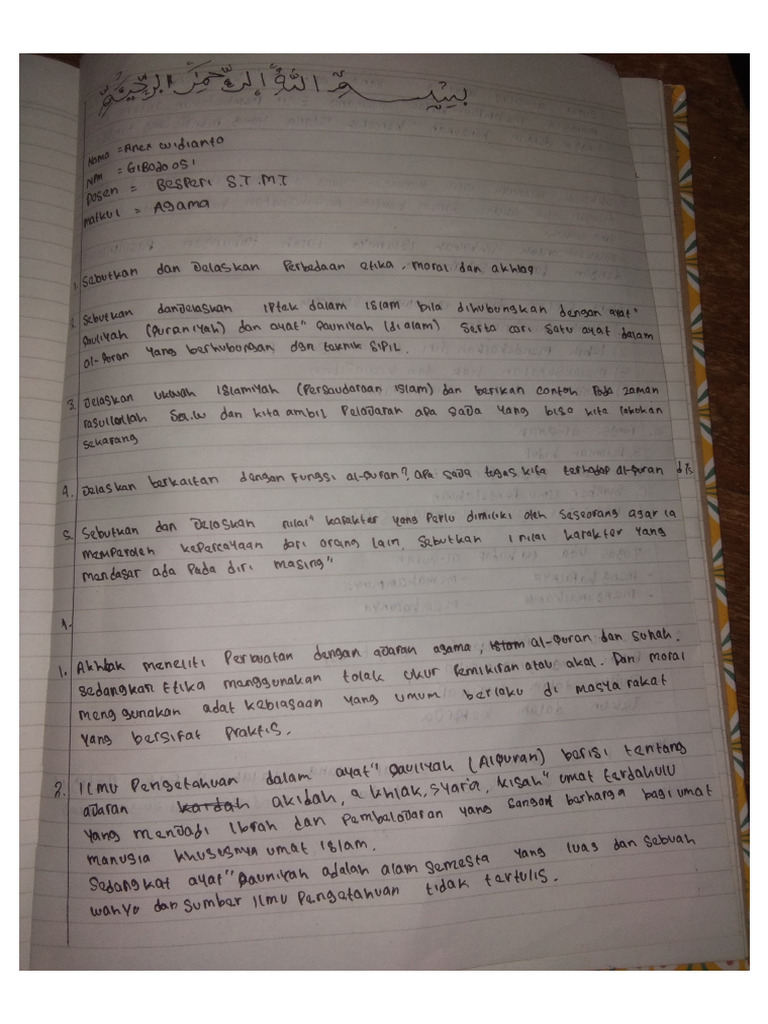 بِسْمِ اللَّهِ الرَّحْمَنِ الرَّحِيمِ
Nama = Anex Widianto
NPM = G1B020051
Dosen = Besperi S.T.M.T
Matkul = Agama
1. Sebutkan dan Jelaskan Perbedaan etika, moral dan akhlaq
2. Sebutkan dan Jelaskan IPtek dalam Islam bila dihubungkan dengan ayat"
Qauliyah (Quraniyah) dan ayat" Qauniyah (di alam) Serta cari satu ayat dalam
al-Quran yang berhubungan dgn teknik SIPIL.
3. Jelaskan ukwah Islamiyah (Persaudaraan islam) dan berikan contoh Pada zaman
rasullorllah Sa.w dan kita ambil Pelajaran apa saja yang bisa kita lakokan
sekarang
4. Jelaskan berkaitan dengan Fungsi al-Quran? apa saja tugas kita terhadap al-Quran
5. Sebutkan dan Jelaskan nilai" karakter yang Perlu dimiliki oleh Seseorang agar ia
memperoleh kepercayaan dari orang lain, Sebutkan 1 nilai karakter yang
mendasar ada Pada diri masing"
1. Akhlak meneliti Perbuatan dengan ajaran agama, Islam al-Quran dan Sunah.
sedangkan Etika menggunakan tolak ukur Pemikiran atau akal. Dan moral
menggunakan adat kebiasaan yang umum berlaku di masyarakat
yang bersifat Praktis.
2. Ilmu Pengetahuan dalam ayat" Qauliyah (AlQuran) berisi tentang
ajaran akidah, akhlak, syaria, kisah" umat terdahulu
yang menjadi Ibrah dan Pembelajaran yang Sangat berharga bagi umat
manusia khususnya umat Islam.
Sedangkat ayat" Qauniyah adalah alam semesta yang luas dan Sebuah
wahyo dan Sumber Ilmu Pengetahuan tidak tertulis.